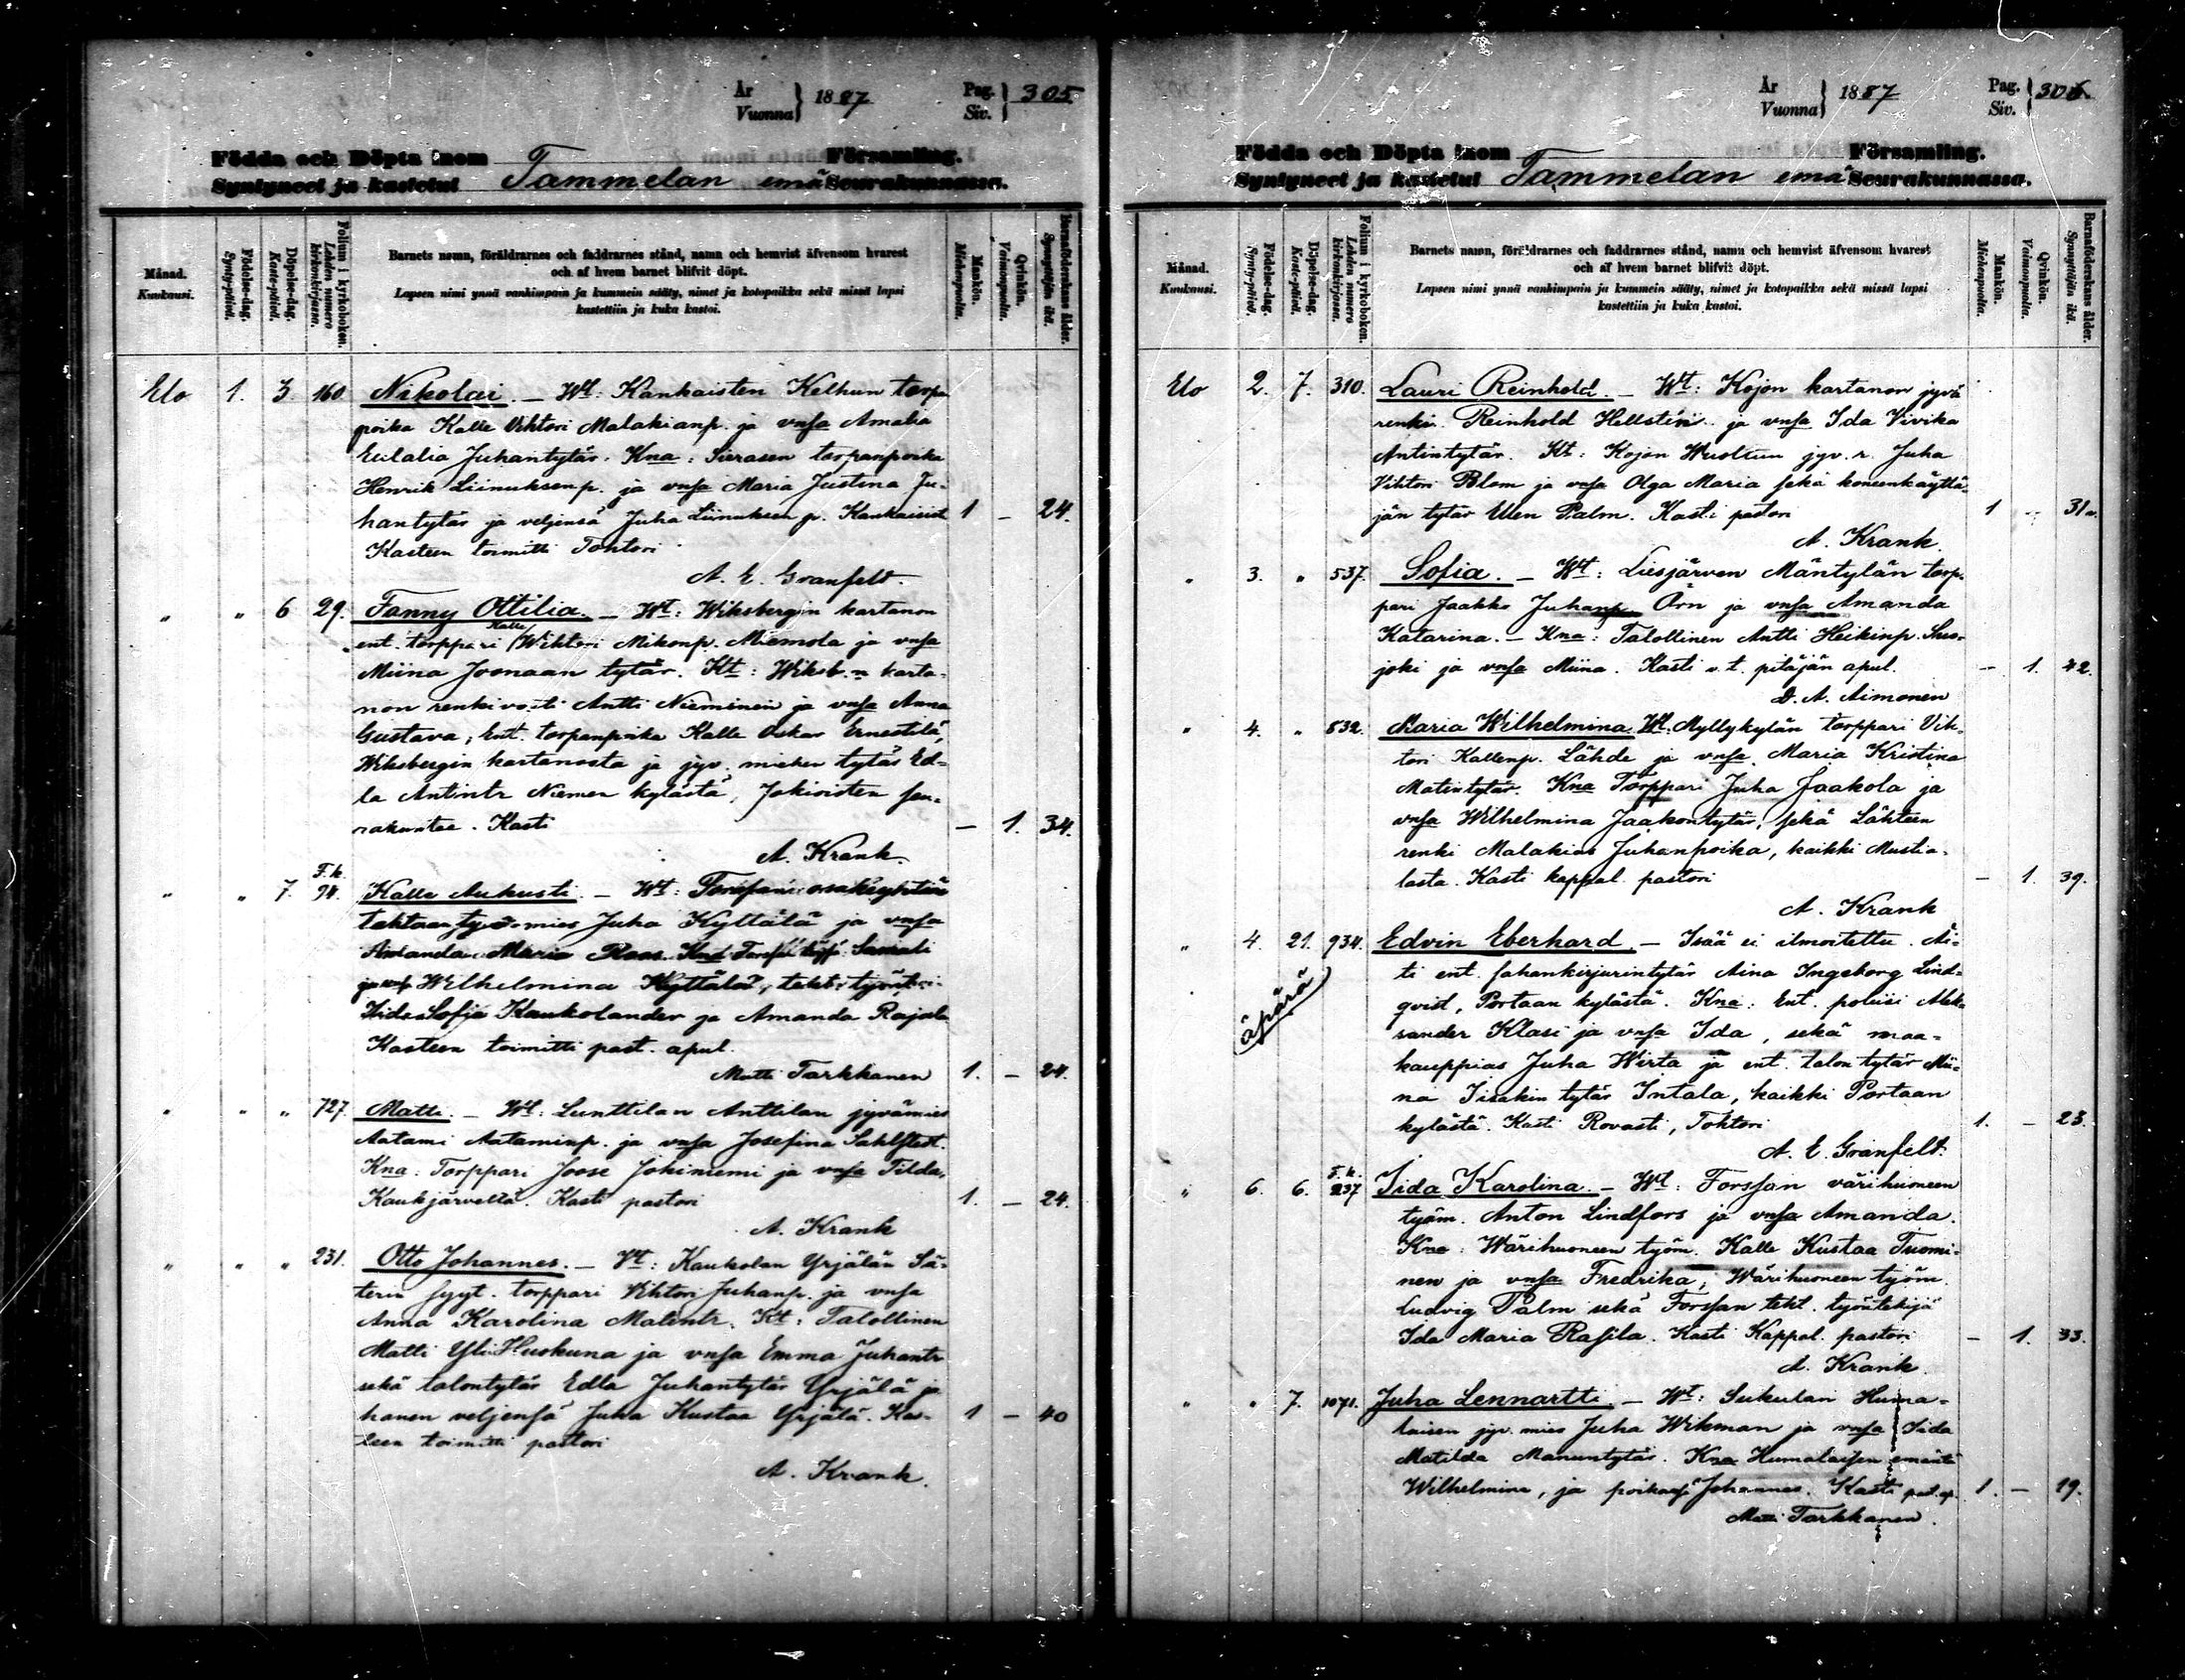 År
Vuonna } 1887
Pag.
Siv. } 305
Födda och Döpta inom Församling.
Syntyneet ja kastetut Tammelan emä Seurakunnassa.
Månad.
Kuukausi.
Födelse-dag.
Synty-päivä.
Döpelse-dag.
Kaste-päivä.
Folium i kyrkoboken.
Lehden numero kirkonkirjassa.
Barnets namn, föräldrarnes och faddrarnes stånd, namn och hemvist äfvensom hvarest
och af hvem barnet blifvit döpt.
Lapsen nimi ynnä vanhimpain ja kummein sääty, nimet ja kotopaikka sekä missä lapsi
kastettiin ja kuka kastoi.
Mankön.
Miehenpuolta.
Qvinkön.
Vaimonpuolta.
Barnaföderskans ålder.
Synnyttäjän ikä.
Elo 1. 3. 160. Nikolai. — Wt: Kankaisten Kelhun torpan
poika Kalle Vihtori Malakianp. ja vmsa Amalia
Eulalia Juhantytär. Kna: Sierasen torpanpoika
Henrik Liinuksenp. ja vmsa Maria Justina Ju-
hantytär ja veljensä Juha Liinuksen p. Kankaisist 1 — 24.
Kasteen toimitti Tohtori
A. E. Granfelt.
" " 6 29. Fanny Ottilia. — Wt: Wiksbergin kartanon
ent. torppari Kalle Wihtori Mikonp. Niemola ja vmsa
Miina Joonaan tytär. Kt: Wiksb.n karta-
non renkivouti Antti Nieminen ja vmsa Anna
Gustava, Ent. torpanpoika Kalle Oskar Ernestilä,
Wiksbergin kartanosta ja jyv. miehen tytär Ed-
la Antintr Niemen kylästä, Jokioisten seu-
rakuntaa. Kasti — 1. 34.
A. Krank.
" " 7. F. k. 94. Kalle Aukusti. — Wt: Forssan osakeyhtiön
tehtaan työmies Juha Kyttälä ja vmsa
Amanda Maria Roos. Kna: Samuli
ja vmsa Wilhelmina Kyttälä, teht. työnt.
Iida Sofia Kaukolander ja Amanda Rajala
Kasteen toimitti past. apul.
Matti Tarkkanen 1. — 24.
" " " 727. Matti. — Wt: Lunttilan Anttilan jyvämies
Aatami Aataminp. ja vmsa Josefina Sahlstedt.
Kna: Torppari Joose Jokiniemi ja vmsa Tilda,
Kaukjärveltä. Kasti pastori 1. — 24.
A. Krank
" " " 231. Otto Johannes. — Vt: Kaukolan Yrjälän Sä-
terin syyt. torppari Vihtori Juhanp. ja vmsa
Anna Karolina Matintr. Kt: Talollinen
Matti Yli Huokuna ja vmsa Emma Juhantr
sekä talontytär Edla Juhantytär Yrjälä ja
hänen veljensä Juha Kustaa Yrjälä. Kas- 1 — 40
teen toimitti pastori
A. Krank.
År
Vuonna } 1887
Pag.
Siv. } 306.
Födda och Döpta inom Församling.
Syntyneet ja kastetut Tammelan emä Seurakunnassa.
Månad.
Kuukausi.
Födelse-dag.
Synty-päivä.
Döpelse-dag.
Kaste-päivä.
Folium i kyrkoboken.
Lehden numero kirkonkirjassa.
Barnets namn, föräldrarnes och faddrarnes stånd, namn och hemvist äfvensom hvarest
och af hvem barnet blifvit döpt.
Lapsen nimi ynnä vanhimpain ja kummein sääty, nimet ja kotopaikka sekä missä lapsi
kastettiin ja kuka kastoi.
Mankön.
Miehenpuolta.
Qvinkön.
Vaimonpuolta.
Barnaföderskans ålder.
Synnyttäjän ikä.
Elo 2. 7. 310. Lauri Reinhold. — Wt: Kojon kartanon jyvä
renki Reinhold Hellstén ja vmsa Ida Vivika
Antintytär. Kt: Kojon jyv. r. Juha
Vihtori Blom ja vmsa Olga Maria sekä koneenkäyttä-
jän tytär Palm. Kasti pastori 1 — 31
A. Krank.
" 3. " 537. Sofia. — Wt: Liesjärven Mäntylän torp-
pari Jaakko Juhanp. Örn ja vmsa Amanda
Katarina. — Kna: Talollinen Antti Heikinp. Suo-
joki ja vmsa Miina. Kasti v.t. pitäjän apul. — 1. 42.
D. A. Aimonen
" 4. " 832. Maria Wilhelmina. Wt: Myllykylän torppari Vik-
tori Kallenp. Lähde ja vmsa Maria Kristina
Matintytär. Kna Torppari Juha Jaakola ja
vmsa Wilhelmina Jaakontytär, sekä Lähteen
renki Malakias Juhanpoika, kaikki Mustia-
lasta. Kasti kappal. pastori — 1. 39.
A. Krank
" 4. 21. 934. Edvin Eberhard. — Isää ei ilmoitettu. Äi-
(äpärä)
ti ent. sahankirjurintytär Aina Ingeborg Lind-
qvist, Portaan kylästä. Kna: Ent. poliisi Alek-
sander Klasi ja vmsa Ida, sekä maa-
kauppias Juha Wirta ja ent. talon tytär Mii-
na Iisakin tytär Intala, kaikki Portaan
kylästä. Kasti Rovasti, Tohtori 1. — 23.
A. E. Granfelt.
" 6. 6. F. k. 237 Iida Karolina. — Wt: Forssan värihuoneen
työm. Anton Lindfors ja vmsa Amanda.
Kna: Wärihuoneen työm. Kalle Kustaa Tuomi-
nen ja vmsa Fredrika, Wärihuoneen työm.
Ludvig Palm sekä Forssan teht. työntekijä
Ida Maria Rasila. Kasti Kappal. pastori — 1. 33.
A. Krank.
" " 7. 1071. Juha Lennartti. — Wt: Sukulan Huma-
laisen jyv. mies Juha Wikman ja vmsa Iida
Matilda Manuntytär. Kna Humalaisen emäntä
Wilhelmina, ja poikansa Johannes. Kasti past. ap. 1. — 19.
Matti Tarkkanen.